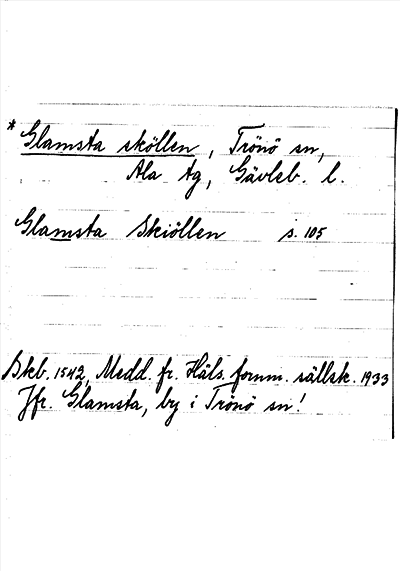 * Glamsta sköllen, Trönö sn,
Ala tg, Gävleb. l.
Glamsta Skiöllen s. 105
Skb. 1542, Medd. fr. Häls. fornm. sällsk. 1933
Jfr. Glamsta, by i Trönö sn!